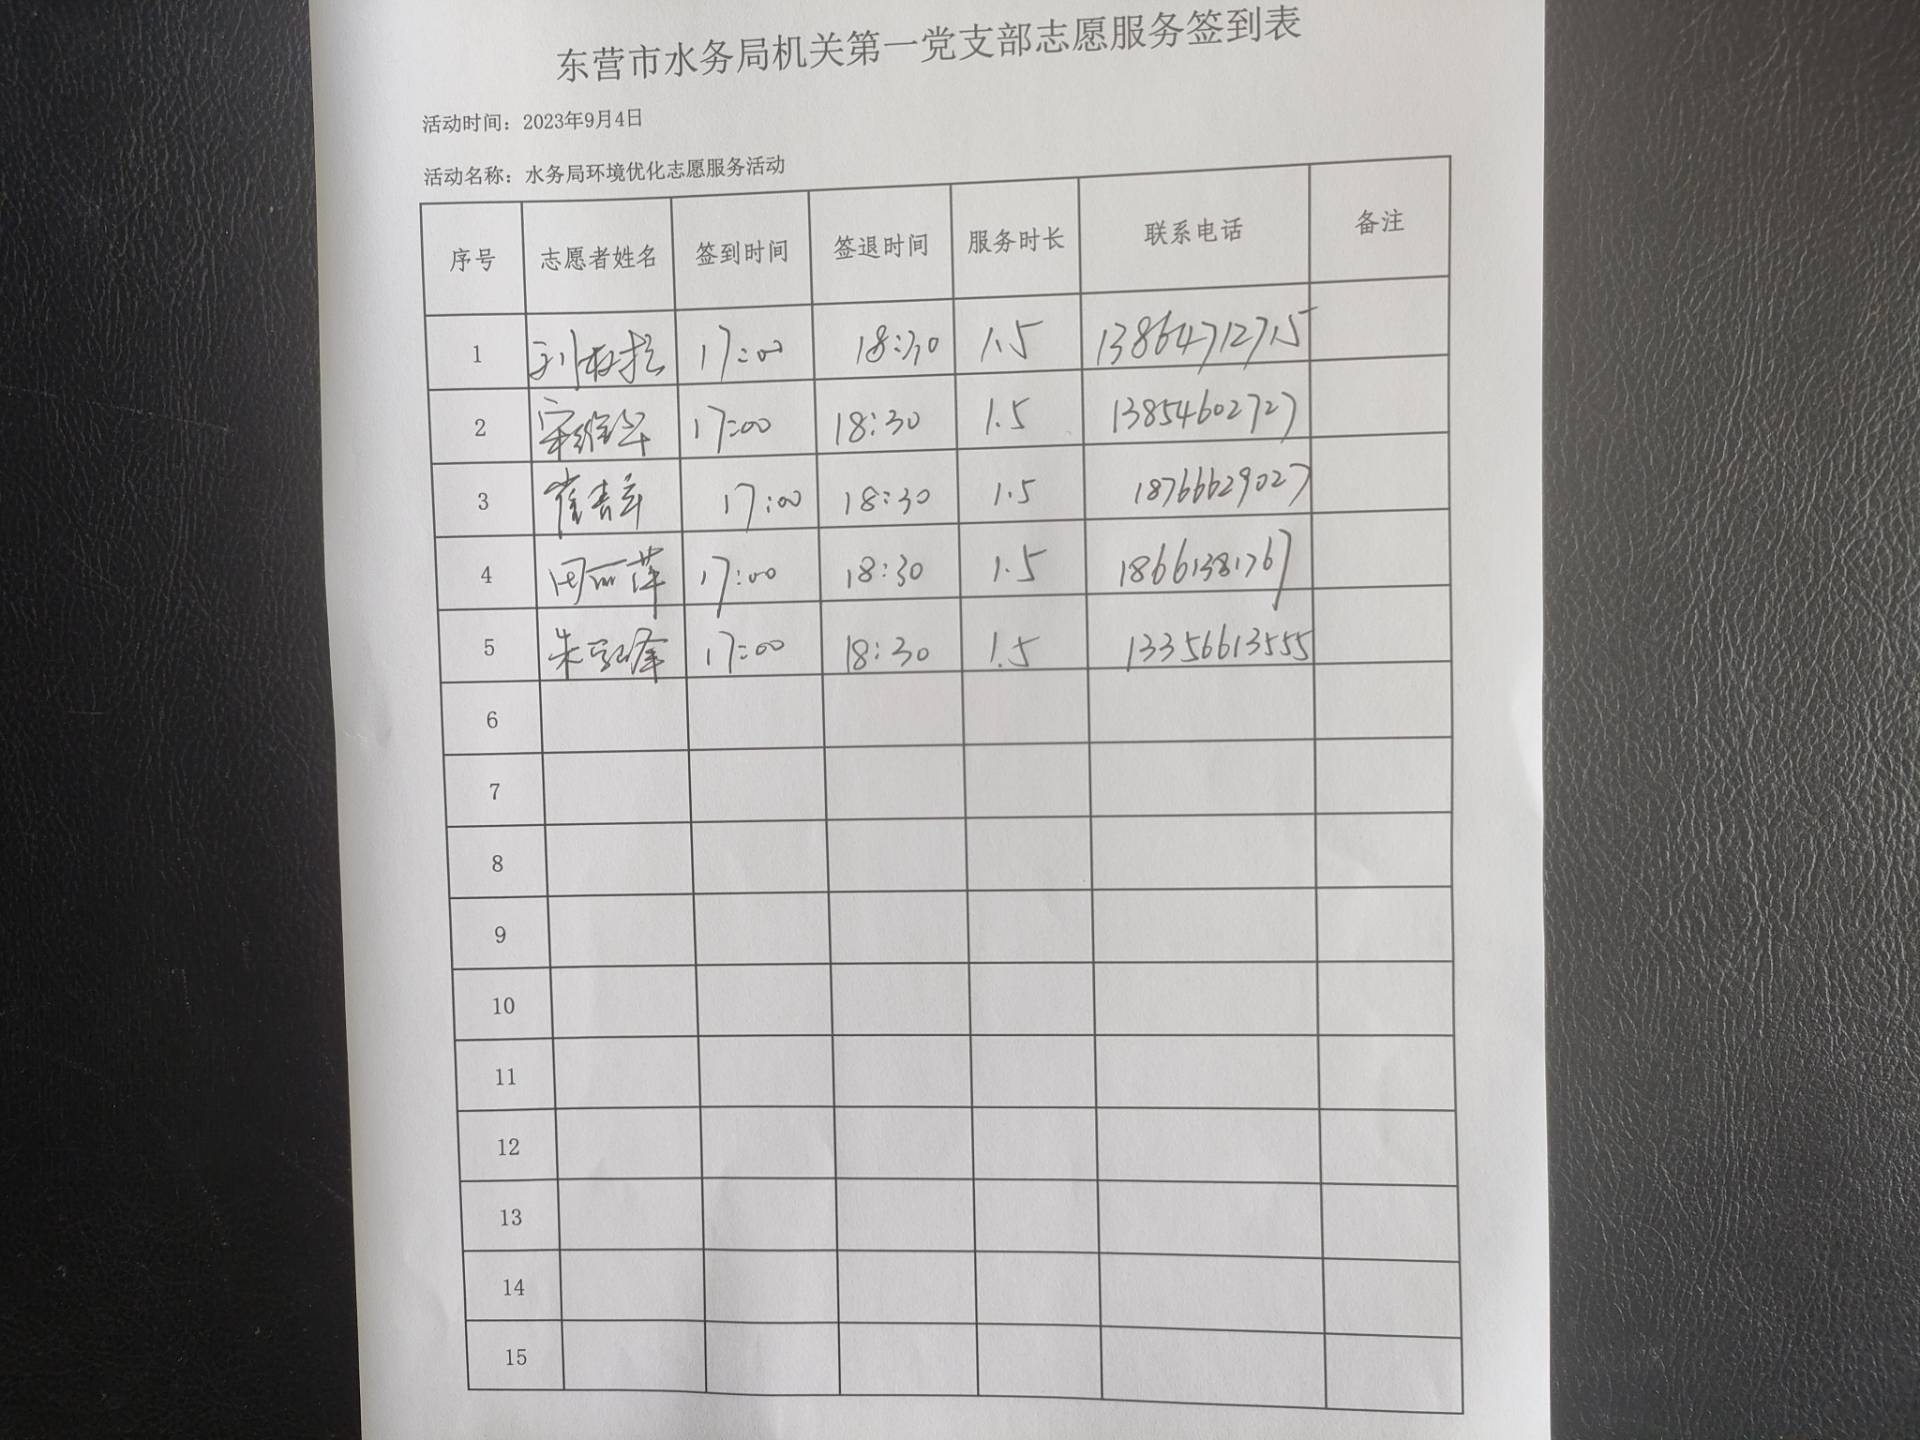 东营市水务局机关第一党支部志愿服务签到表
活动时间：2023年9月4日
活动名称：水务局环境优化志愿服务活动
序号 志愿者姓名 签到时间 签退时间 服务时长 联系电话 备注
1 17:00 18:30 1.5 13864712715
2 宋维华 17:00 18:30 1.5 13854602727
3 17:00 18:30 1.5 18766629027
4 周丽萍 17:00 18:30 1.5 18661381767
5 17:00 18:30 1.5 13356613555
6
7
8
9
10
11
12
13
14
15